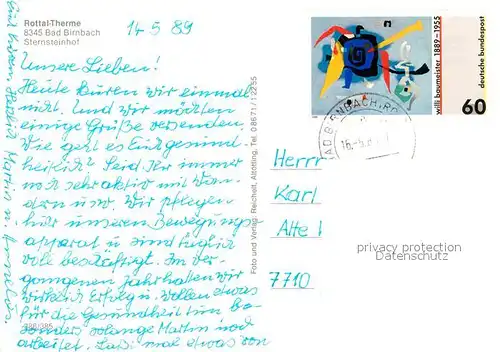 Rottal-Therme
8345 Bad Birnbach
Sternsteinhof
14.5.89
Unsere Lieben!
Heute kuren wir einmal
nicht. Und wir möchten
einige Grüße versenden.
Wie geht es Euch gesund-
heitlich? Seid Ihr immer
noch sehr aktiv mit Wan-
dern usw. Wir pflegen
hier unseren Bewegungs-
apparat u sind täglich
voll beschäftigt. Im ver-
gangenen Jahr hatten wir
wirklich Erfolg u. wollen etwas
für die Gesundheit tun, be-
sonders solange Martin noch
arbeitet. Laßt mal etwas von
Martin u.
Foto und Verlag: Reichelt, Altötting, Tel. 08671/12255
willi baumeister 1889-1955
deutsche bundespost
60
BAD BIRNBACH
Herrn
Karl
Alte
7710
privacy protection
Datenschutz